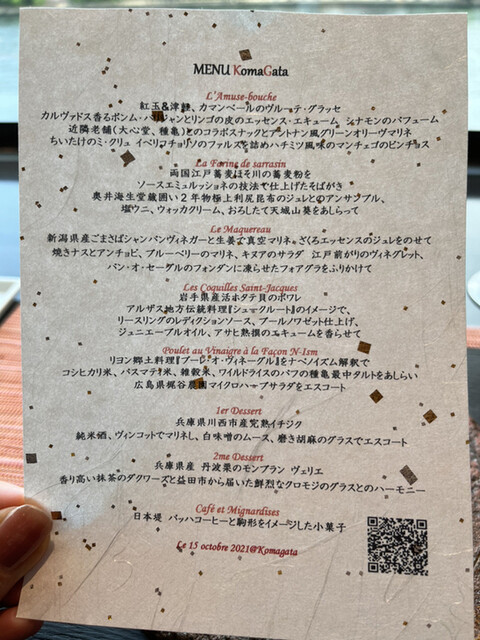 MENU KomaGata
L'Amuse-bouche
紅玉&津軽、カマンベールのヴルーテ・グラッセ
カルヴァドス香るポンム・パリジャンとリンゴの皮のエッセンス・エキューム シナモンのパフューム
近隣老舗(大心堂、種亀)とのコラボスナックとアントナン風グリーンオリーヴマリネ
ちいたけのミ・クリュ イベリコチョリソのファルスを詰めハチミツ風味のマンチェゴのピンチョス
La Farine de sarrasin
両国江戸蕎麦ほそ川の蕎麦粉を
ソースエミュルッショネの技法で仕上げたそばがき
奥井海生堂蔵囲い2年物極上利尻昆布のジュレとのアンサンブル、
塩ウニ、ウォッカクリーム、おろしたて天城山葵をあしらって
Le Maquereau
新潟県産ごまさばシャンパンヴィネガーと生姜で真空マリネ、ざくろエッセンスのジュレをのせて
焼きナスとアンチョビ、ブルーベリーのマリネ、キヌアのサラダ 江戸前がりのヴィネグレット、
パン・オ・セーグルのフォンダンに凍らせたフォアグラをふりかけて
Les Coquilles Saint-Jacques
岩手県産活ホタテ貝のポワレ
アルザス地方伝統料理『シュークルート』のイメージで、
リースリングのレディクションソース、ブールノワゼット仕上げ、
ジュニエーブルオイル、アサヒ熟撰のエキュームを香らせて
Poulet au Vinaigre à la Façon N-Ism
リヨン郷土料理『プーレ・オ・ヴィネーグル』をナベノイズム解釈で
コシヒカリ米、バスマティ米、雑穀米、ワイルドライスのパフの種亀最中タルトをあしらい
広島県梶谷農園マイクロハーブサラダをエスコート
1er Dessert
兵庫県川西市産完熟イチジク
純米酒、ヴィンコットでマリネし、白味噌のムース、磨き胡麻のグラスでエスコート
2me Dessert
兵庫県産 丹波栗のモンブラン ヴェリエ
香り高い抹茶のダクワーズと益田市から届いた鮮烈なクロモジのグラスとのハーモニー
Café et Mignardises
日本堤 バッハコーヒーと駒形をイメージした小菓子
Le 15 octobre 2021@Komagata